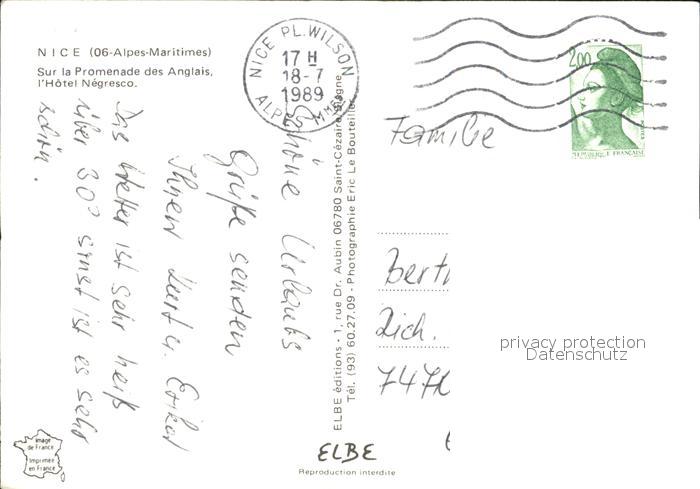 NICE (06-Alpes-Maritimes)
Sur la Promenade des Anglais,
l'Hôtel Négresco.
NICE PL. WILSON
17 H
18-7
1989
ALPES MMES
2,00
POSTES
REPUBLIQUE FRANÇAISE
Schöne Urlaubs
Grüße senden
Ihnen Kurt u. Erika
Das Wetter ist sehr heiß
über 30° sonst ist es sehr
schön.
ELBE éditions - 1, rue Dr. Aubin 06780 Saint-Cézaire/Siagne
Tél. (93) 60.27.09 - Photographie Eric Le Bouteiller
Familie
Bert
Lich.
7470
privacy protection
Datenschutz
image
de France
Imprimée
en France
ELBE
Reproduction interdite